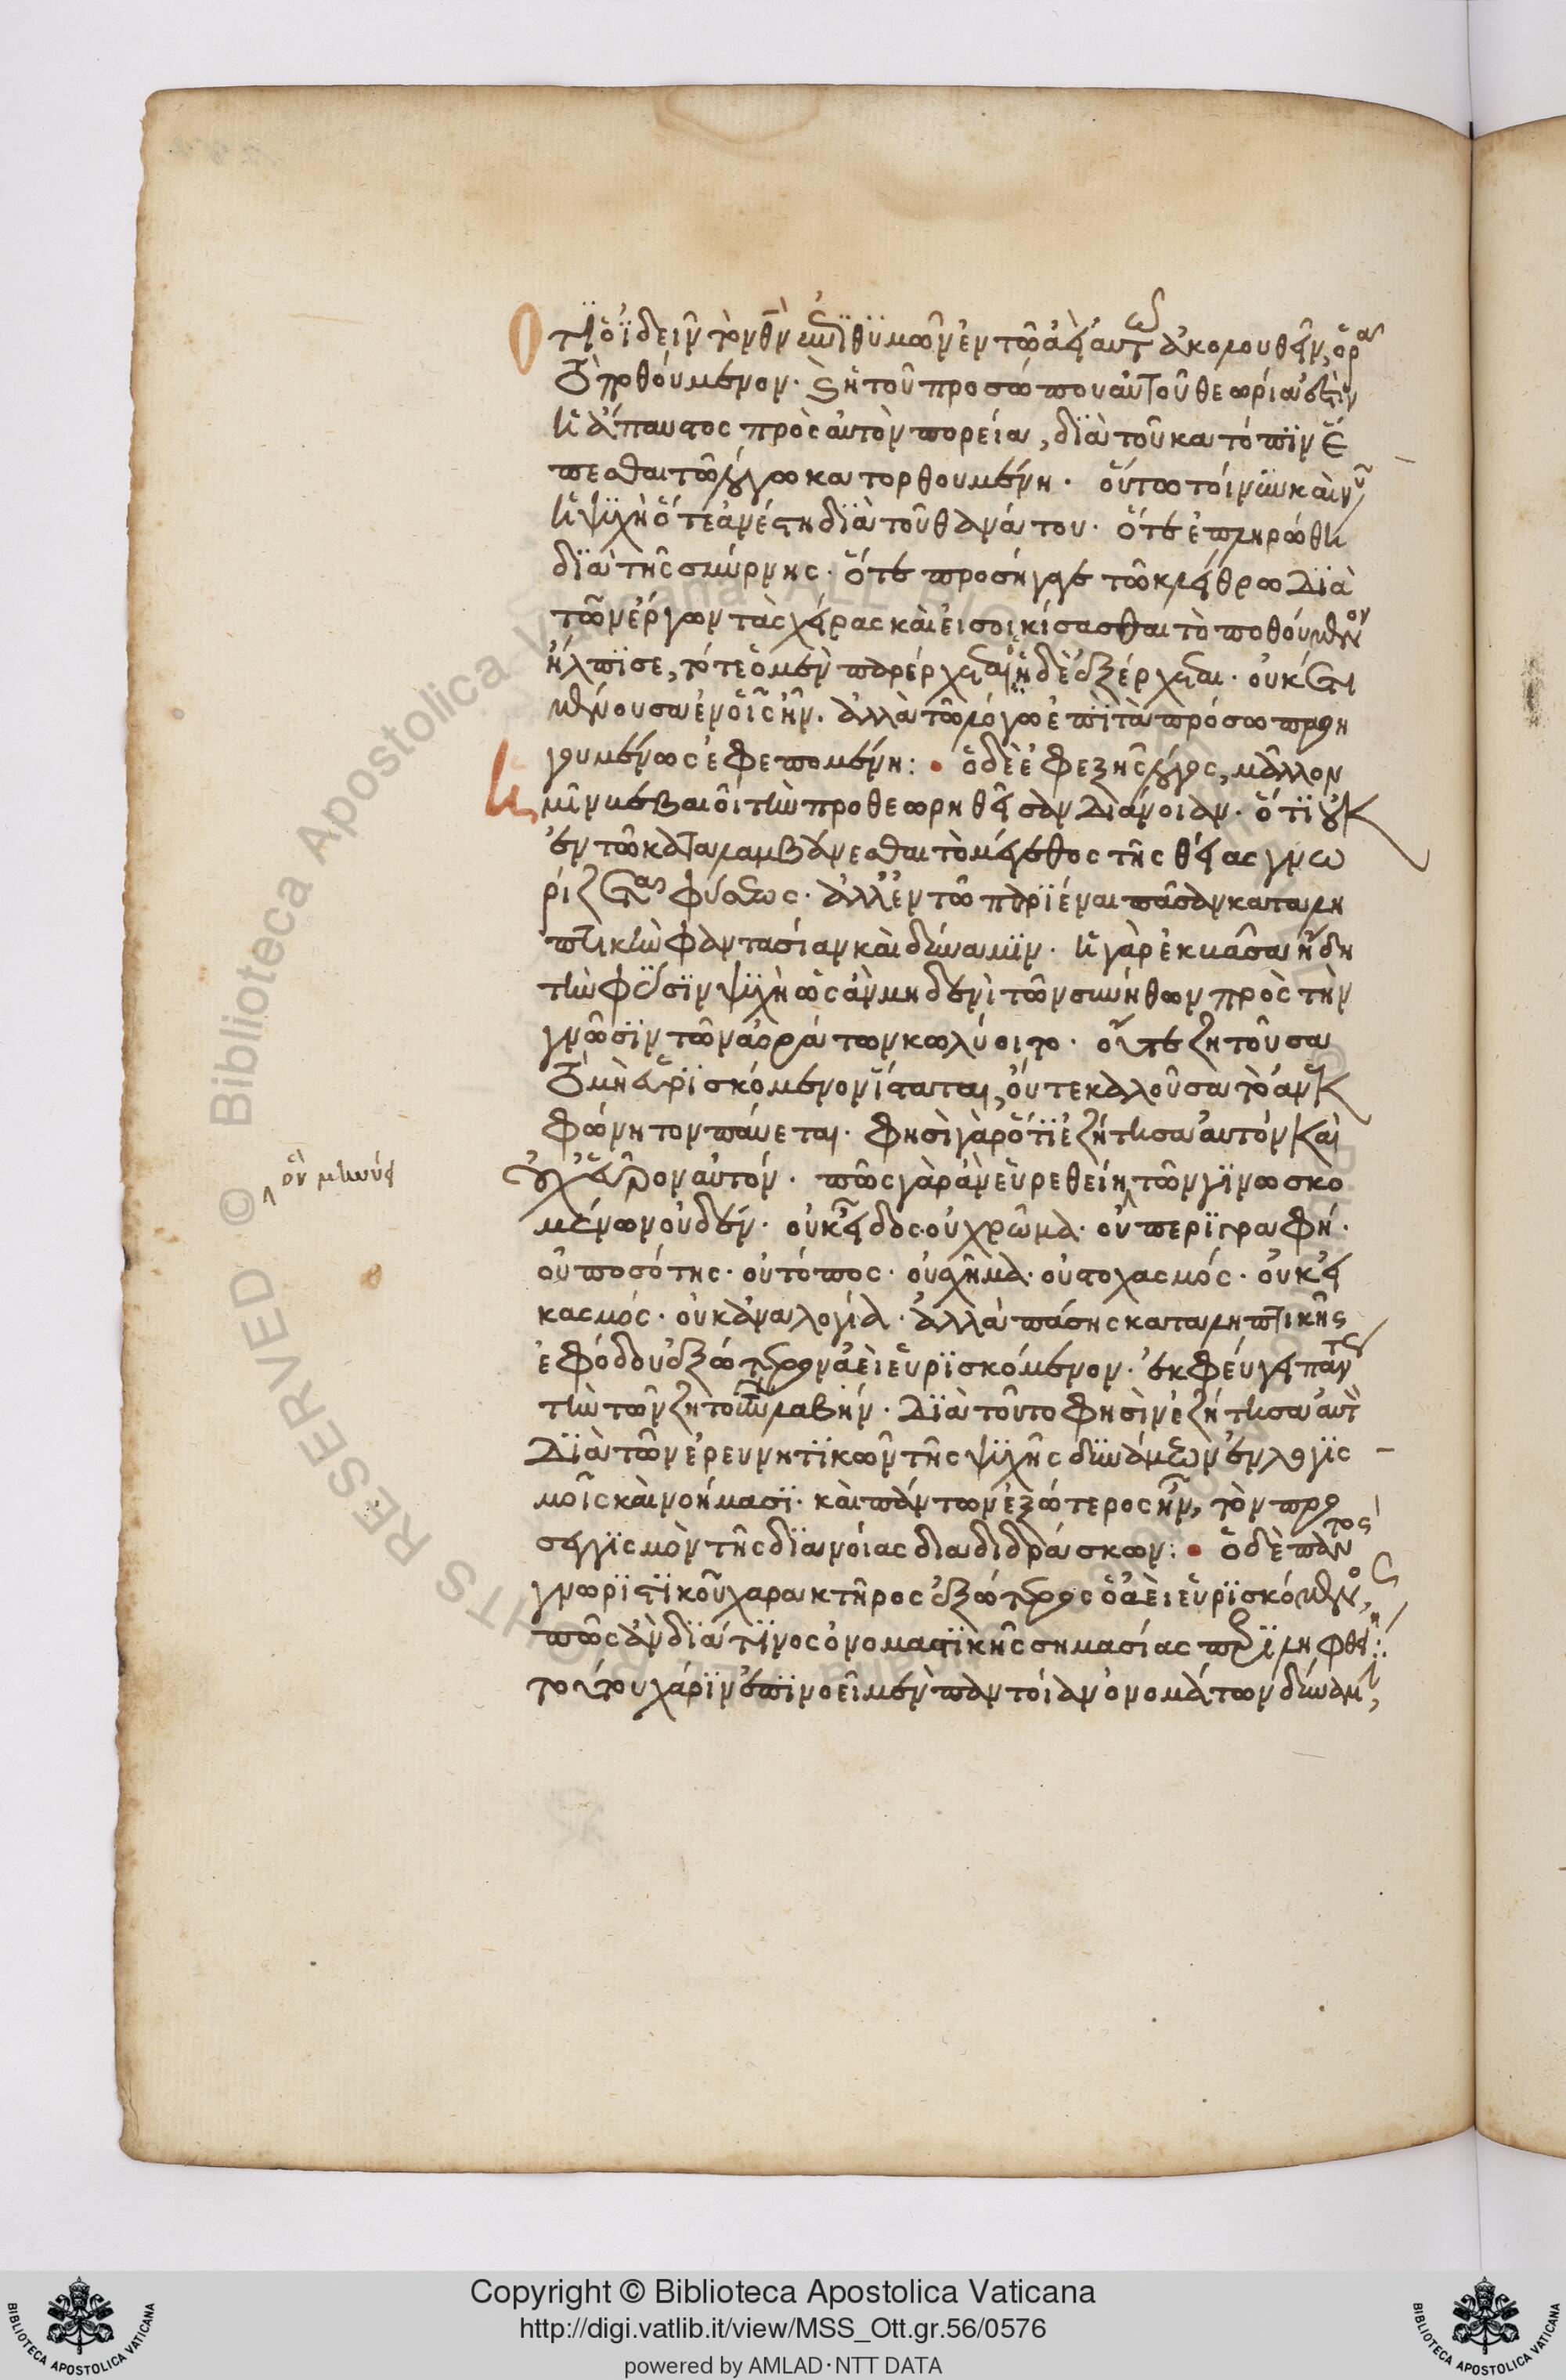 Ὅτι ὁ ἰδεῖν τὸν θν ἐπιθυμῶν ἐν τῷ ἀεὶ αὐτῷ ἀκολουθεῖν, ὁρᾷ
τὸ ποθούμενον· καὶ ἡ τοῦ προσώπου αὐτοῦ θεωρία ἐστὶν
ἡ ἄπαυστος πρὸς αὐτὸν πορεία, διὰ τοῦ κατόπιν ἕ
πεσθαι τῷ λόγῳ κατορθουμένη· οὕτω τοίνυν καὶ νῦν
ἡ ψυχὴ ὅτε ἀνέστη διὰ τοῦ θανάτου· ὅτε ἐπληρώθη
διὰ τῆς σμύρνης· ὅτε προσήγαγε τῷ κλείθρῳ διὰ
τῶν ἔργων τὰς χεῖρας καὶ εἰσοικίσασθαι τὸ ποθούμενον
ἤλπισε, τότε ὁ μὲν παρέρχεται ἡ δὲ ἐξέρχεται· οὐκέτι
μένουσα ἐν οἷς ἦν· ἀλλὰ τῷ λόγῳ ἐπὶ τὰ πρόσω προη
γουμένως ἐφεπομένη: • ὁ δὲ ἐφεξῆς λόγος, μᾶλλον
ἡμῖν βεβαιοῖ τὴν προθεωρηθεῖσαν διάνοιαν· ὅτι οὐκ
ἐν τῷ καταλαμβάνεσθαι τὸ μέγεθος τῆς θείας γνω
ρίζεται φύσεως· ἀλλ' ἐν τῷ παριέναι πᾶσαν καταλη
πτικὴν φαντασίαν καὶ δύναμιν· ἡ γὰρ ἐκβᾶσα ἤδη
τὴν φύσιν ψυχὴ ὡς ἂν μηδενὶ τῶν συνήθων πρὸς τὴν
γνῶσιν τῶν ἀοράτων κωλύοιτο· οὔτε ζητοῦσα
τὸ μὴ εὑρισκόμενον ἵσταται, οὔτε καλοῦσα τὸ ἀνεκ
φώνητον παύεται· φησὶ γὰρ ὅτι ἐζήτησα αὐτόν καὶ
οὐχ εὗρον αὐτόν· πῶς γὰρ ἂν εὑρεθείη τῶν γινωσκο
ὃν μηνύει
μένων οὐδέν· οὐκ εἶδος· οὐ χρῶμα· οὐ περιγραφή·
οὐ ποσότης· οὐ τόπος· οὐ σχῆμα· οὐ στοχασμός· οὐκ εἰ
κασμός· οὐκ ἀναλογία· ἀλλὰ πάσης καταληπτικῆς
ἐφόδου ἐξώτερον ἀεὶ εὑρισκόμενον· ἐκφεύγει πάντως
τὴν τῶν ζητούντων λαβήν· διὰ τοῦτο φησὶν ἐζήτησα αὐτὸν
διὰ τῶν ἐρευνητικῶν τῆς ψυχῆς δυνάμεων ἐν λογισ
μοῖς καὶ νοήμασι· καὶ πάντων ἐξώτερος ἦν, τὸν προ
σεγγισμὸν τῆς διανοίας διαδιδράσκων: • ὁ δὲ παντὸς
γνωριστικοῦ χαρακτῆρος ἐξώτερος ὁ ἀεὶ εὑρισκόμενος,
πῶς ἂν διά τινος ὀνομαστικῆς σημασίας περιληφθείη:
τούτου χάριν ἐπινοεῖ μὲν παντοίαν ὀνομάτων δύναμιν,
Copyright © Biblioteca Apostolica Vaticana
http://digi.vatlib.it/view/MSS_Ott.gr.56/0576
powered by AMLAD·NTT DATA
BIBLIOTECA APOSTOLICA VATICANA
BIBLIOTECA APOSTOLICA VATICANA